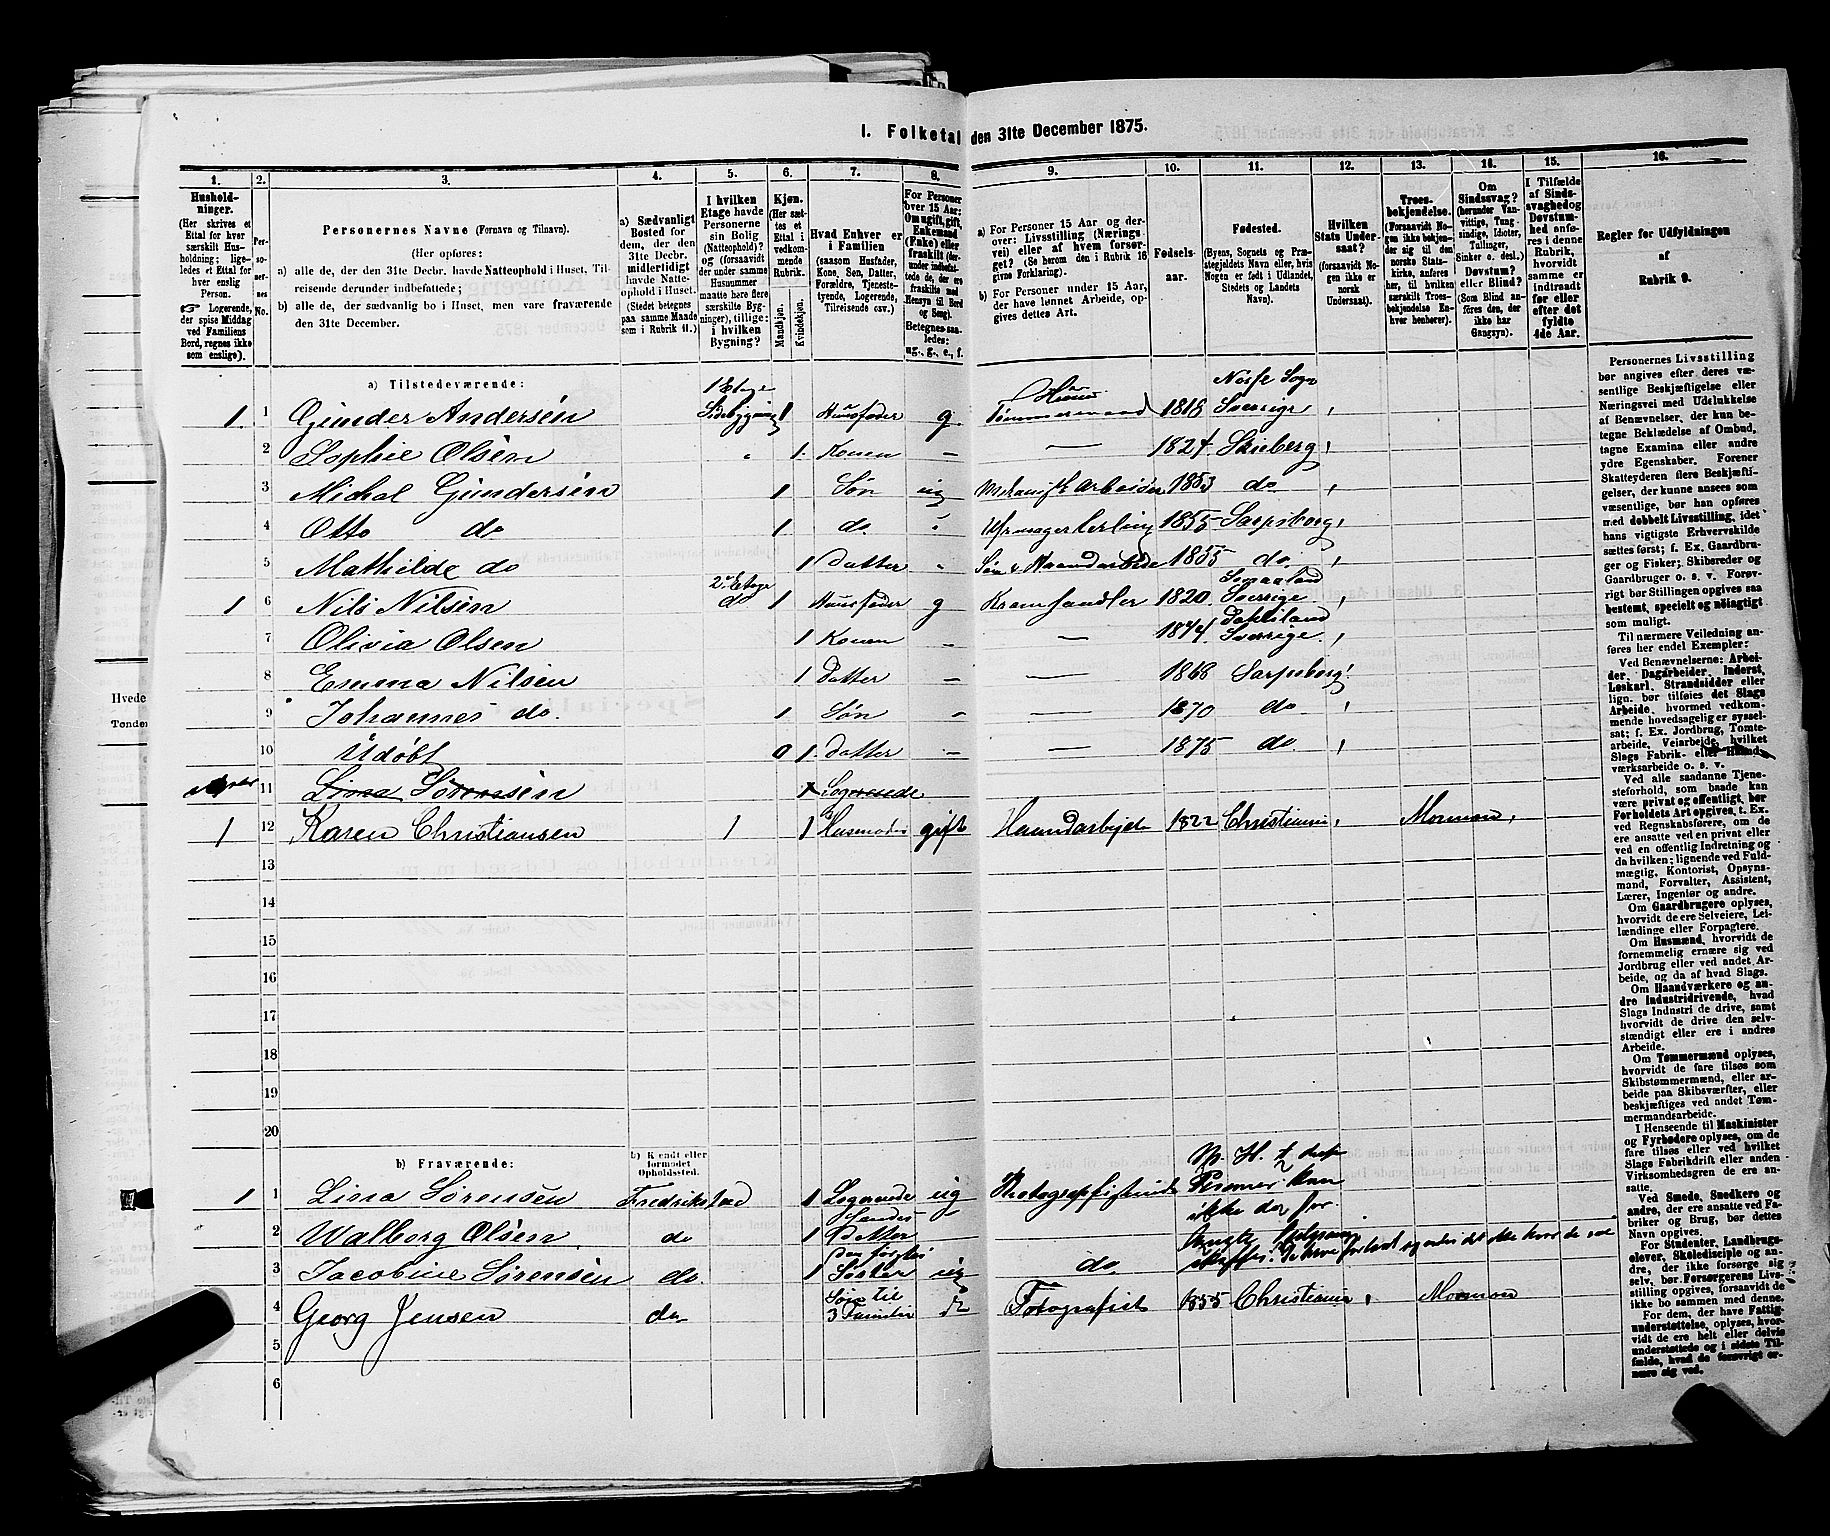 1. Folketal den 31te December 1875.
1. 2. 3. 4. 5. 6. 7. 8. 9. 10. 11. 12. 13. 14. 15. 16.
Hushold-
ninger.
(Her skrives et
Ettal for hver
særskilt Hus-
holdning; lige-
ledes et Ettal for
hver enslig
Person.
Logerende,
der spise Middag
ved Familiens
Bord, regnes ikke
som enslige).
Per-
so-
ner-
nes
No.
Personernes Navne (Fornavn og Tilnavn).
(Her opføres:
a) alle de, der den 31te Decbr. havde Natteophold i Huset, Til-
reisende derunder indbefattede;
b) alle de, der sædvanlig bo i Huset, men vare fraværende
den 31te December.
a) Sædvanligt
Bosted for
dem, der den
31te Decbr.
midlertidigt
havde Natte-
ophold i Huset.
(Stedet betegnes
paa samme Maade
som i Rubrik 11.)
I hvilken
Etage havde
Personerne
sin Bolig
(Natteophold)?
og (forsaavidt
der under samme
Husnummer
maatte høre flere
særskilte Byg-
ninger), tillige:
i hvilken
Bygning?
Kjøn.
(Her sæt-
tes et
Ettal i
vedkom-
mende
Rubrik.
Mandkjøn.
Kvindekjøn.
Hvad Enhver er
i Familien
(saasom Husfader,
Kone, Søn, Datter,
Forældre, Tjeneste-
tyende, Logerende,
Tilreisende osv.)
For Personer
over 15 Aar:
Om ugift, gift,
Enkemand
(Enke) eller
fraskilt
Betegnes saa-
ledes:
ug., g., e., f.
a) For Personer 15 Aar og der-
over: Livsstilling (Nærings-
vei) eller af hvem forsør-
get? (Se herom den i Rubrik 16
givne Forklaring).
b) For Personer under 15 Aar,
der have lønnet Arbeide, op-
gives dettes Art.
Fødsels-
aar.
Fødested.
(Byens, Sognets og Præ-
stegjeldets Navn eller, hvis
Nogen er født i Udlandet,
Stedets og Landets
Navn).
Hvilken
Stats Under-
saat?
(forsaavidt No-
gen ikke er
norsk
Undersaat).
Troes-
bekjendelse.
(Forsaavidt No-
gen ikke bekjen-
der sig til den
norske Stats-
kirke, anføres
her, til hvilken
særskilt Troes-
bekjendelse En-
hver henhører).
Om
Sindssvag?
(herunder Van-
vittige, Tung-
sindige, Idioter,
Tullinger,
Sinker o. desl.)
Døvstum?
eller Blind?
(Som Blind an-
føres den, der
ikke har
Gangsyn).
I Tilfælde
af Sinds-
svaghed og
Døvstum-
hed anfø-
res i denne
Rubrik,
hvorvidt
samme er
indtraadt
før eller
efter det
fyldte
4de Aar.
Regler for Udfyldningen
af
Rubrik 9.
a) Tilstedeværende:
1 1 Gunder Andersen 1 Etage Sidebygning 1 Husfader g. Tømmermand 1818 Sverrige
2 Sophie Olsen 1 Konen 1824 Skieberg
3 Michal Gundersen 1 Søn ug 1853 do
4 Otto do 1 do. 1855 Sarpsborg
5 Mathilde do 1 Datter 1855 do
1 6 Nils Nilsen 2 Etage do 1 Husfader g Kramhandler 1820 Smaaland Sverrige
7 Olivia Olsen 1 Konen Sverrige
8 Emma Nilsen 1 Datter 1868 Sarpsborg
9 Johannes do. 1 Søn 1870 do
10 Udøbt 0 1 Datter 1875 do
11 Lina Sørensen Logerende
1 12 Karen Christiansen 1 1 Husmoder gift 1822 Mormon
13
14
15
16
17
18
19
20
b) Fraværende:
b) Kjendt eller
formodet
Opholdssted.
1 1 Lina Sørensen Fredrikstad 1 Logerende ug
2 Walborg Olsen do 1 Datter
3 Jacobine Sørensen do. 1 Søster ug do.
4 Georg Jensen do Fotografist 1855 Mormon
5
6
Personernes Livsstilling
bør angives efter deres væ-
sentlige Beskjæftigelse eller
Næringsvei med Udelukkelse
af Benævnelser, der kun be-
tegne Beklædelse af Ombud,
tagne Examina eller andre
ydre Egenskaber. Forener
Skatteyderen flere Beskjæfti-
gelser, der kunne ansees som
væsentlige, bør han opføres
med dobbelt Livsstilling, idet
hans vigtigste Erhvervskilde
sættes først; f. Ex. Gaardbru-
ger og Fisker; Skibsreder og
Gaardbruger o. s. v. Forøv-
rigt bør Stillingen opgives saa
bestemt, specielt og nøiagtigt
som muligt.
Til nærmere Veiledning an-
føres her endel Exempler:
Ved Benævnelserne: Arbei-
der, Dagarbeider, Inderst,
Løskarl, Strandsidder eller
lign. bør tilføies det Slags
Arbeide, hvormed vedkom-
mende hovedsagelig er syssel-
sat; f. Ex. Jordbrug, Tomte-
arbeide, Veiarbeide, hvilket
Slags Fabrik- eller Haand-
værksarbeide o. s. v.
Ved alle saadanne Tjene-
steforhold, som baade kan
være privat og offentligt, bør
Forholdets Art opgives, t. Ex.
ved Regnskabsførere, om de
ere ansatte ved en privat eller
ved en offentlig Indretning og
da hvilken; lignende ved Fuld-
mægtig, Kontorist, Opsyns-
mand, Forvalter, Assistent,
Lærer, Ingeniør og andre.
Om Gaardbrugere oplyses,
hvorvidt de ere Selveiere, Lei-
lændinge eller Forpagtere.
Om Husmænd, hvorvidt de
fornemmelig ernære sig ved
Jordbrug eller ved andet Ar-
beide, og da af hvad Slags.
Om Haandværkere og an-
dre Industridrivende, hvad
Slags Industri de drive, samt
hvorvidt de drive den selv-
stændigt eller ere i andres
Arbeide.
Om Tømmermænd oplyses,
hvorvidt de fare tilsøs som
Skibstømmermænd, eller ar-
beide paa Skibsværfter, eller
beskjæftiges ved andet Tøm-
mermandsarbeide.
I Henseende til Maskinister
og Fyrbødere oplyses, om de
fare tilsøs eller ved hvilket
Slags Fabrikdrift eller anden
Virksomhedsgren de ere an-
satte.
Ved Smede, Snedkere og
andre, der ere ansatte ved Fa-
briker og Brug, bør dettes
Navn opgives.
For Studenter, Landbrugs-
elever, Skoledisciple og an-
dre, der ikke forsørge sig
selv, bør Forsørgerens Livs-
stilling opgives, forsaavidt de
ikke bo sammen med denne.
For dem, der have Fattig-
understøttelse, oplyses, hvor-
vidt de ere helt eller delvis
understøttede og i sidste Til-
fælde, hvad de forøvrigt er-
nære sig ved.
Hvede
Tønder